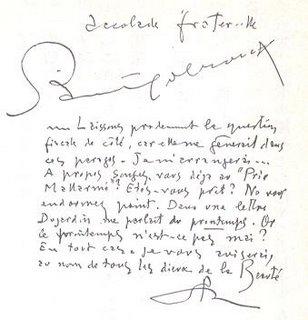 accolade fraternelle
Laissons prudemment la question
fiscale de côté, car elle me gênerait dans
ces parages. Je m'arrangerais...
A propos songez-vous déjà au "Prix
Mallarmé"? Etes-vous prêt? Ne vous
endormez point. Dans une lettre
Dujardin me parlait du printemps. Or
le printemps n'est-ce pas mai?
En tout cas je vous aviserai,
au nom de tous les dieux de la Beauté